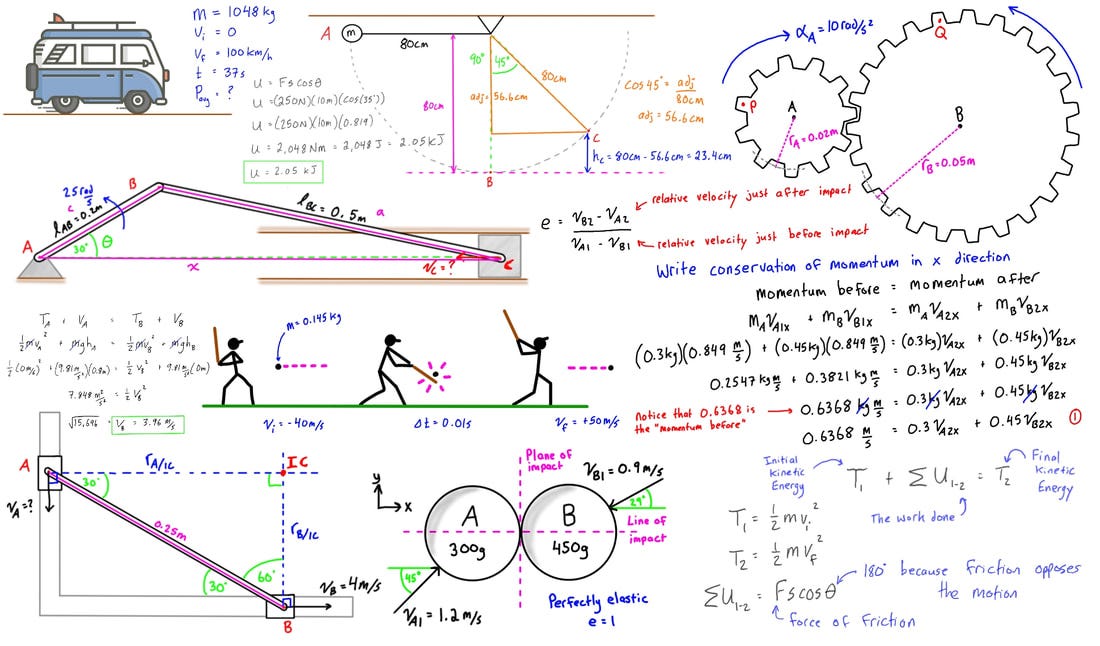 m = 1048 kg
Vᵢ = 0
V_f = 100 km/h
t = 37s
P_avg = ?
U = Fscosθ
U = (250N)(10m)(cos(35°))
U = (250N)(10m)(0.819)
U = 2,048 Nm = 2,048 J = 2.05 kJ
U = 2.05 kJ
A
m
80cm
90°
45°
80cm
80cm
adj = 56.6cm
C
h_c = 80cm - 56.6cm = 23.4cm
B
cos45° = adj/80cm
adj = 56.6cm
α_A = 10 rad/s²
P
A
r_A = 0.02m
Q
B
r_B = 0.05m
25 rad/s
B
c
l_AB = 0.2m
l_BC = 0.5m
a
A
30°
θ
x
V_C = ?
C
e = (V_B2 - V_A2)/(V_A1 - V_B1)
relative velocity just after impact
relative velocity just before impact
Write conservation of momentum in x direction
momentum before = momentum after
m_A V_A1x + m_B V_B1x = m_A V_A2x + m_B V_B2x
(0.3kg)(0.849 m/s) + (0.45kg)(0.849 m/s) = (0.3kg)V_A2x + (0.45kg)V_B2x
0.2547 kg m/s + 0.3821 kg m/s = 0.3kg V_A2x + 0.45kg V_B2x
Notice that 0.6368 is
the "momentum before"
0.6368 kg m/s = 0.3kg V_A2x + 0.45kg V_B2x
0.6368 m/s = 0.3 V_A2x + 0.45 V_B2x
1
T_A + V_A = T_B + V_B
½mv_A² + mgh_A = ½mv_B² + mgh_B
½(0m/s)² + (9.81m/s²)(0.8m) = ½v_B² + 9.81m/s²(0m)
7.848 m²/s² = ½v_B²
√15.696 = V_B = 3.96 m/s
m = 0.145 kg
Vᵢ = -40m/s
Δt = 0.01s
V_f = +50m/s
A
r_A/IC
IC
30°
V_A = ?
0.25m
r_B/IC
30°
60°
V_B = 4m/s
B
y
x
Plane of
impact
V_B1 = 0.9 m/s
29°
A
300g
B
450g
Line of
impact
45°
V_A1 = 1.2 m/s
Perfectly elastic
e = 1
Initial
Kinetic
Energy
T₁ + ΣU₁₋₂ = T₂
Final
Kinetic
Energy
The work done
T₁ = ½mvᵢ²
T₂ = ½mv_f²
ΣU₁₋₂ = Fscosθ
180° because friction opposes
the motion
force of friction